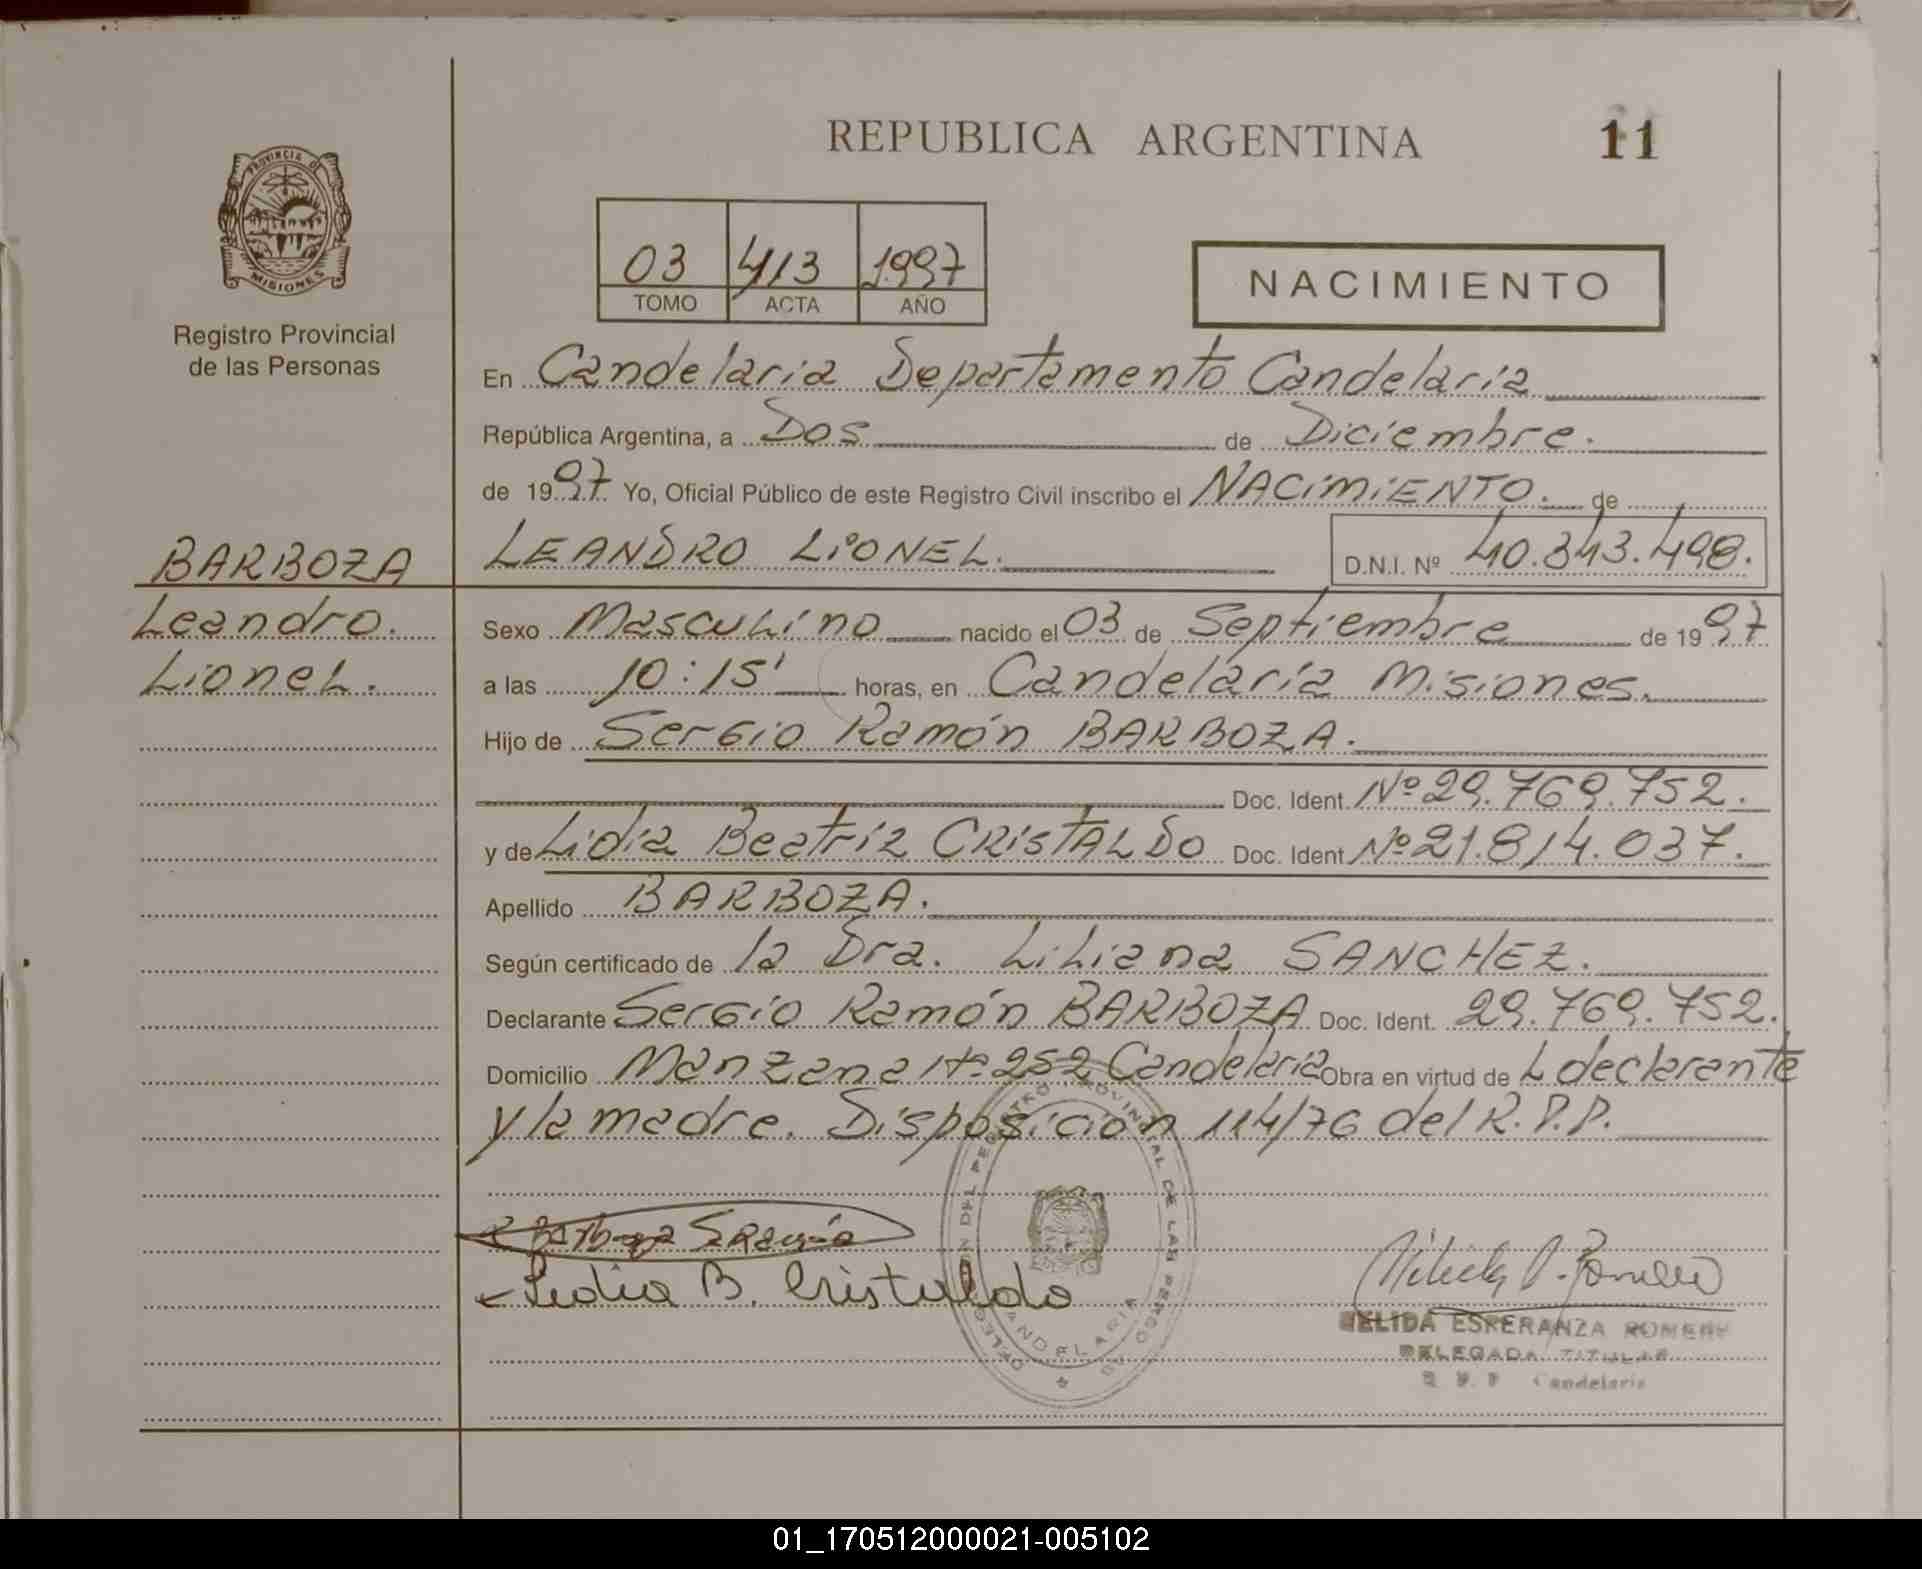 REPUBLICA ARGENTINA
11
PROVINCIA DE
MISIONES
Registro Provincial
de las Personas
03 413 1997
TOMO ACTA AÑO
NACIMIENTO
En Candelaria Departamento Candelaria
República Argentina, a Dos de Diciembre.
de 1997. Yo, Oficial Público de este Registro Civil inscribo el NACIMIENTO. de
BARBOZA
LEANDRO LIONEL. D.N.I. Nº 40.343.498.
Leandro.
Sexo Masculino nacido el 03 de Septiembre de 1997
Lionel.
a las 10:15' horas, en Candelaria Misiones.
Hijo de Sergio Ramón BARBOZA.
Doc. Ident. Nº 29.769.752.
y de Lidia Beatriz CRISTALDO Doc. Ident Nº 21.814.037.
Apellido BARBOZA.
Según certificado de la Dra. Liliana SANCHEZ.
Declarante Sergio Ramón BARBOZA Doc. Ident. 29.769.752.
Domicilio Manzana Nº 252 Candelaria Obra en virtud de L declarante
y la madre. Disposición 114/76 del R.P.P.
DELEGACION DEL REGISTRO PROVINCIAL DE LAS PERSONAS
CANDELARIA
Barboza
Lidia B. Cristaldo
NELIDA ESPERANZA ROMERO
DELEGADA TITULAR
Candelaria
01_170512000021-005102